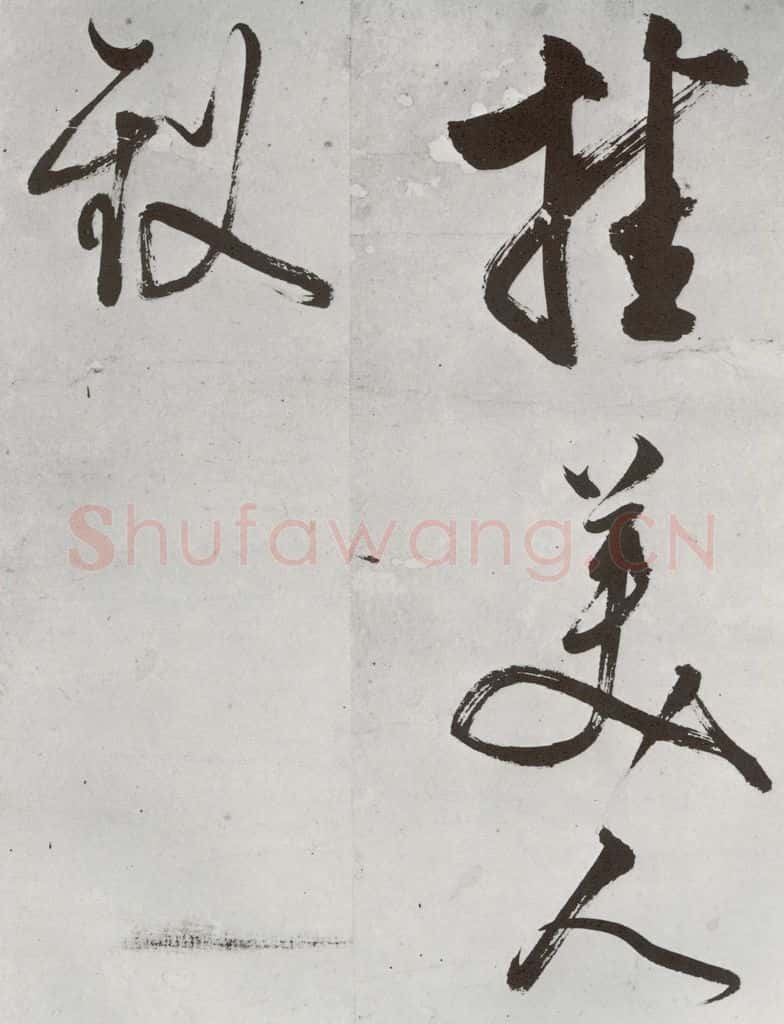 挂美人
釵
Shufawang.CN